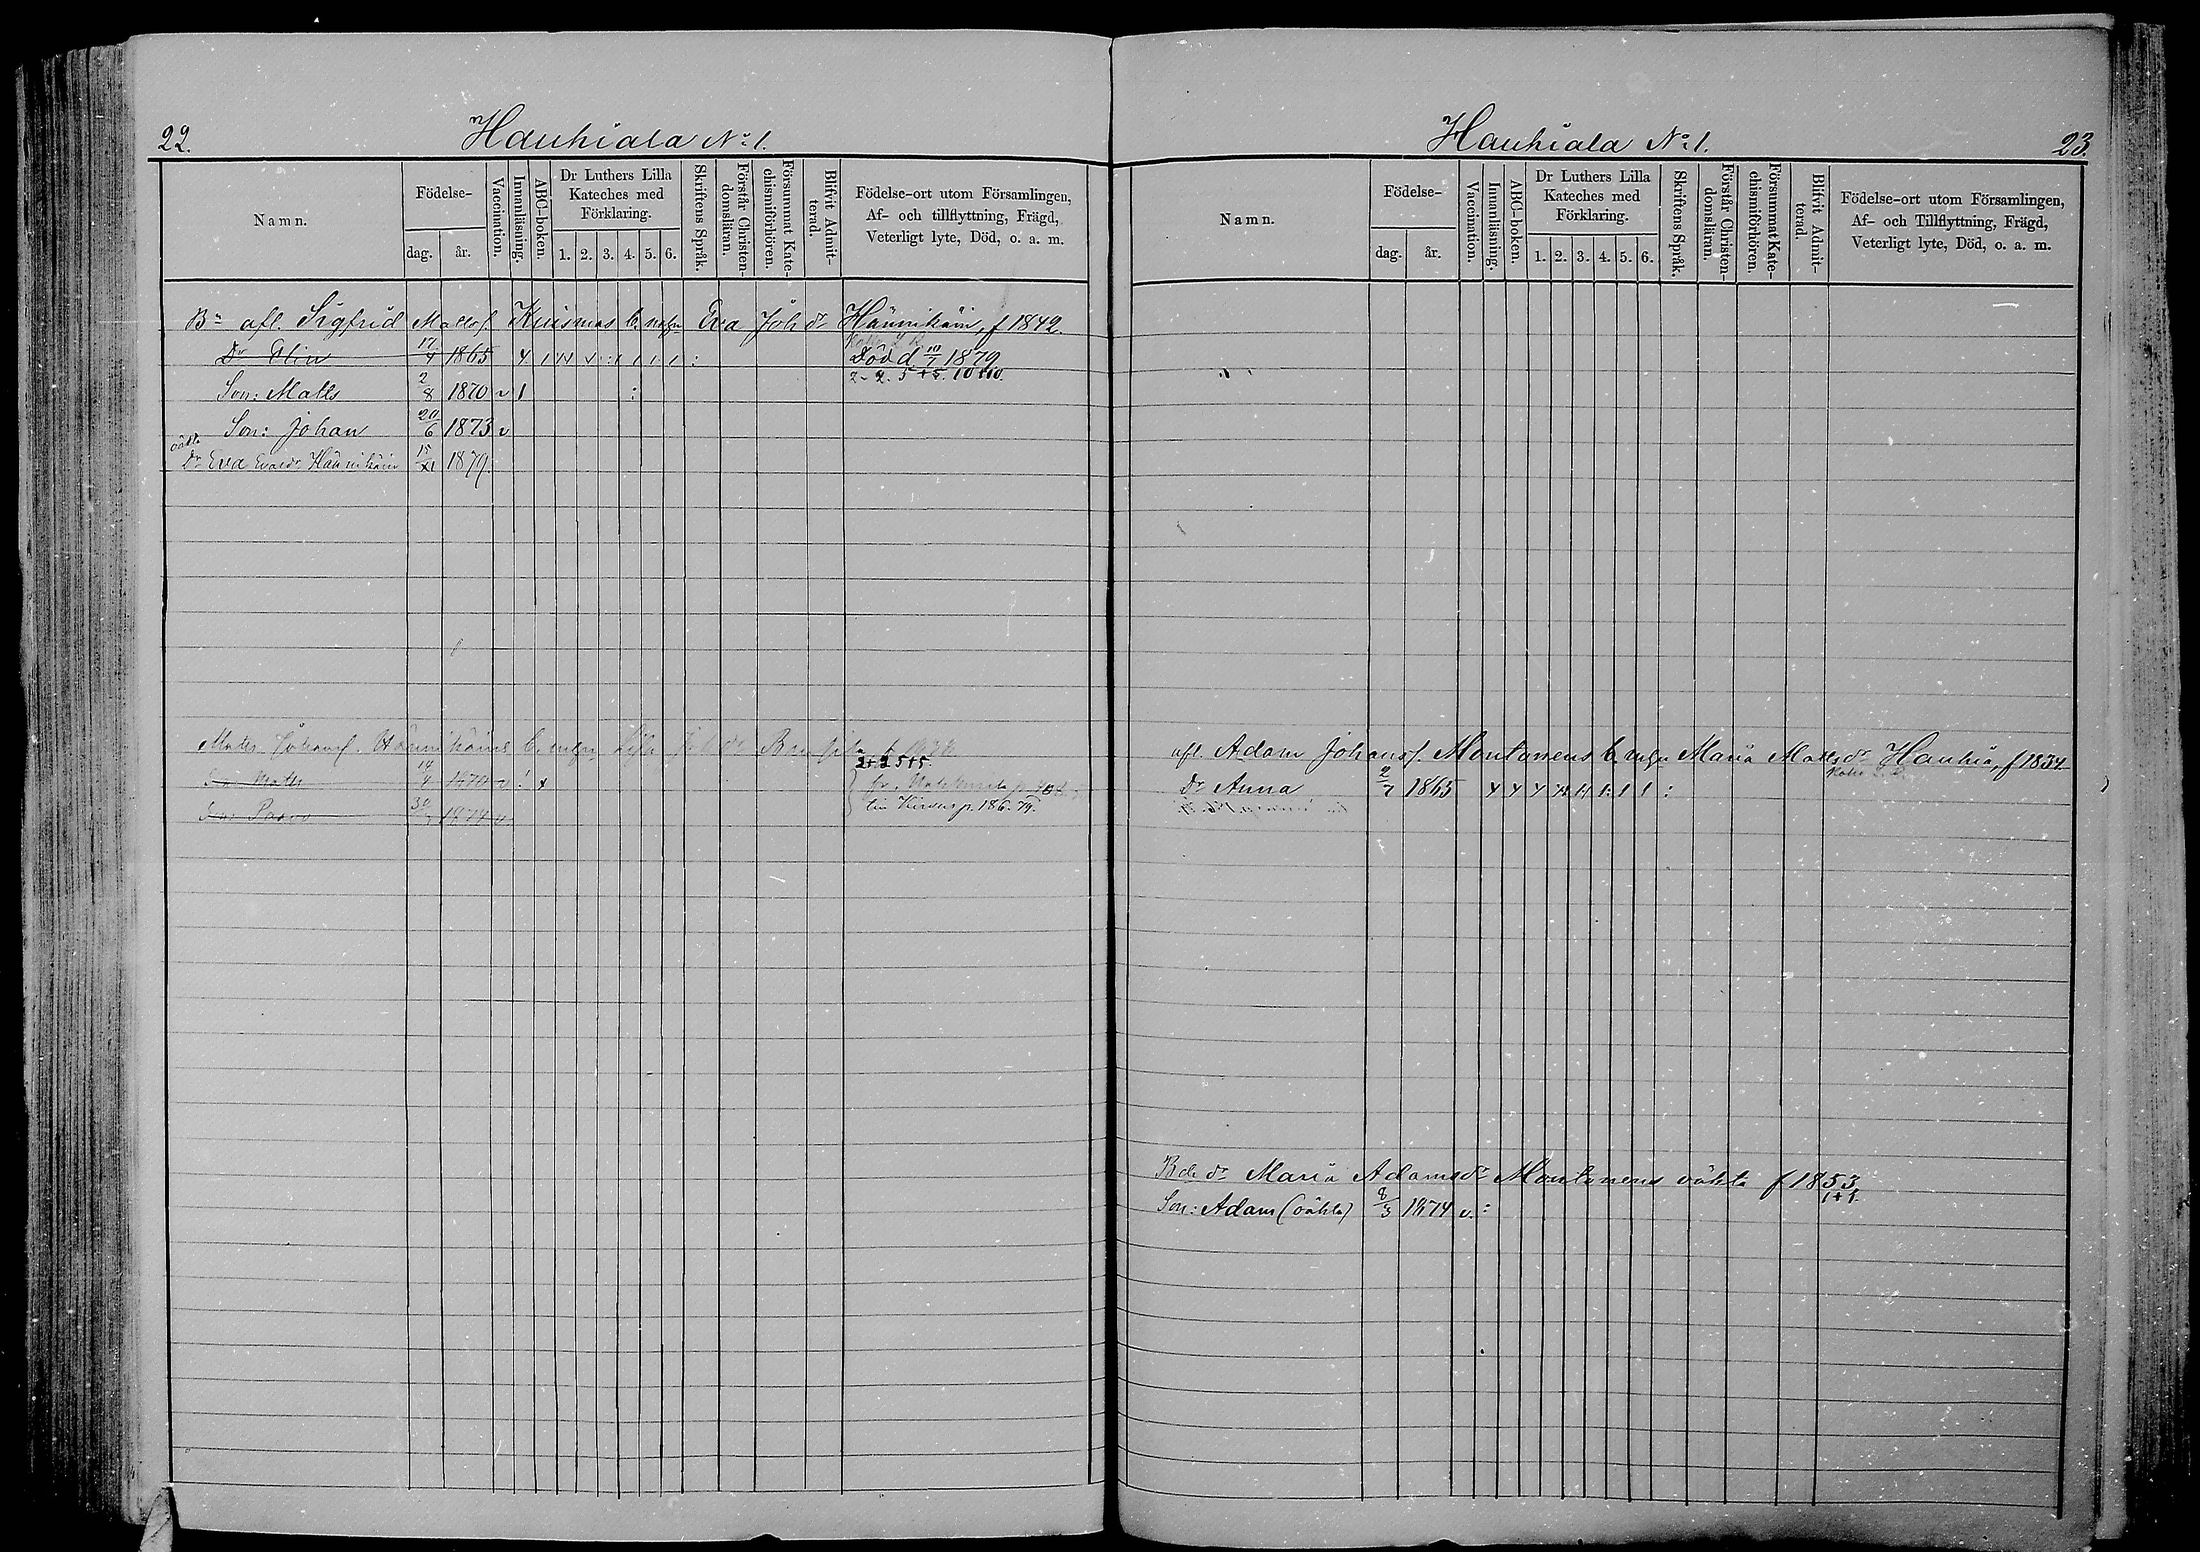 22.
Hauhiala No 1.
Namn.
Födelse-
dag.
år.
Vaccination.
Innanläsning.
ABC-boken.
Dr Luthers Lilla
Kateches med
Förklaring.
1. 2. 3. 4. 5. 6.
Skriftens Språk.
Förstår Christen-
domsläran.
Försummat Kate-
chismiförhören.
Blifvit Admit-
terad.
Födelse-ort utom Församlingen,
Af- och tillflyttning, Frägd,
Veterligt lyte, Död, o. a. m.
Bn afl. Sigfrid Matts f. Kuismas b. Eva Joh dr Hännikäin, f 1842.
Dr Elin 17/4 1865
Död d 10/7 1879
2-2. 5+5. 10+10.
Son: Matts 2/8 1870 v 1
Son: Johan 20/6 1873 v
oäkta
Dr Eva Evaedr Hännikäin 15/XI 1879.
Matts Johansf. Hännikäins b.
2+2 5+5.
Son Matts 14/4 1870 v
Son: Paavo 30 1874 v
p. 186. 79.
Hauhiala No 1.
23.
Namn.
Födelse-
dag.
år.
Vaccination.
Innanläsning.
ABC-boken.
Dr Luthers Lilla
Kateches med
Förklaring.
1. 2. 3. 4. 5. 6.
Skriftens Språk.
Förstår Christen-
domsläran.
Försummat Kate-
chismiförhören.
Blifvit Admit-
terad.
Födelse-ort utom Församlingen,
Af- och Tillflyttning, Frägd,
Veterligt lyte, Död, o. a. m.
afl. Adam Johansf. Montonens b. Maria Matts dr Hauhia, f 1834
Dr Anna 2/7 1865
Bde dr Maria Adamsdr Montonens oäkta f 1853
1+1.
Son: Adam (oäkta) 8/3 1874 v.